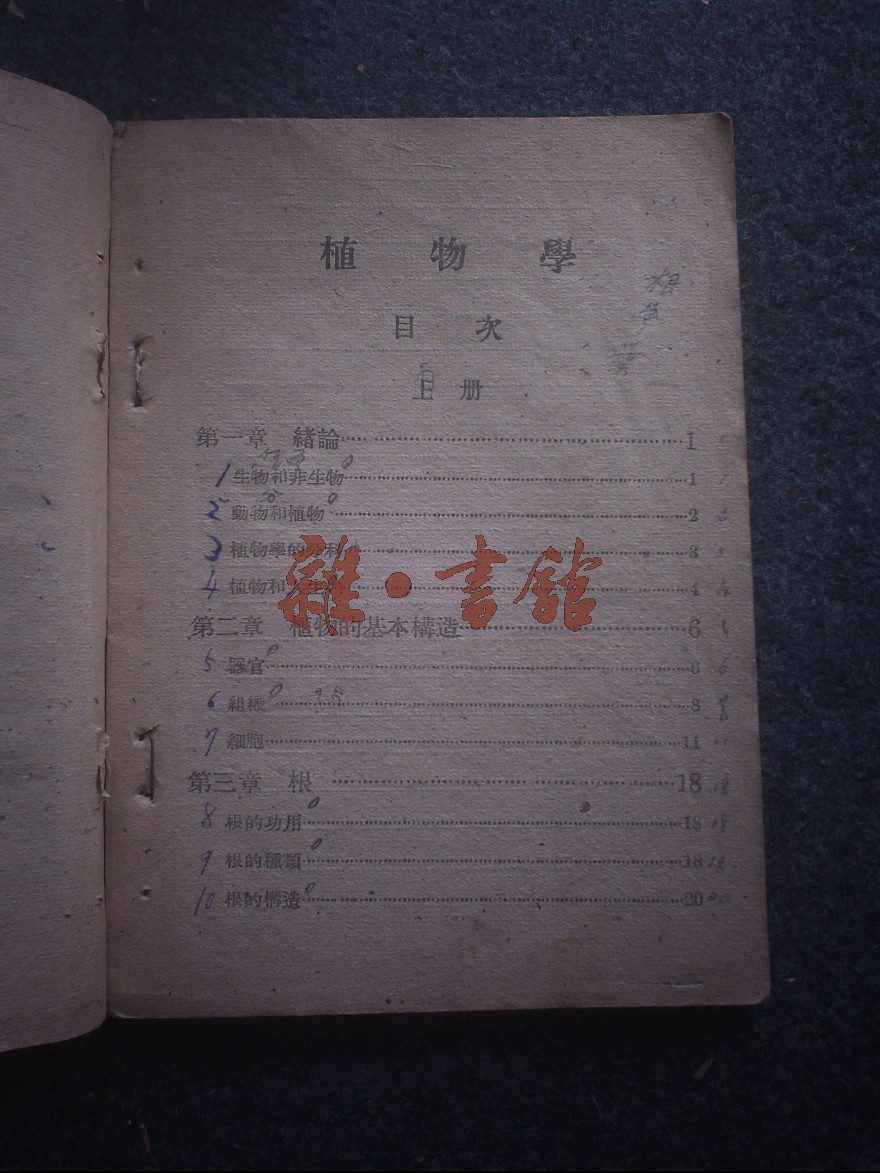 植物學
目次
上册
第一章 緒論 1
1 生物和非生物 1
2 動物和植物 2
3 植物學的分科 3
4 植物和人生 4
雜·書館
第二章 植物的基本構造 6
5 器官 6
6 組織 8
7 細胞 11
第三章 根 18 18
8 根的功用 18 18
9 根的種類 18 18
10 根的構造 20 20